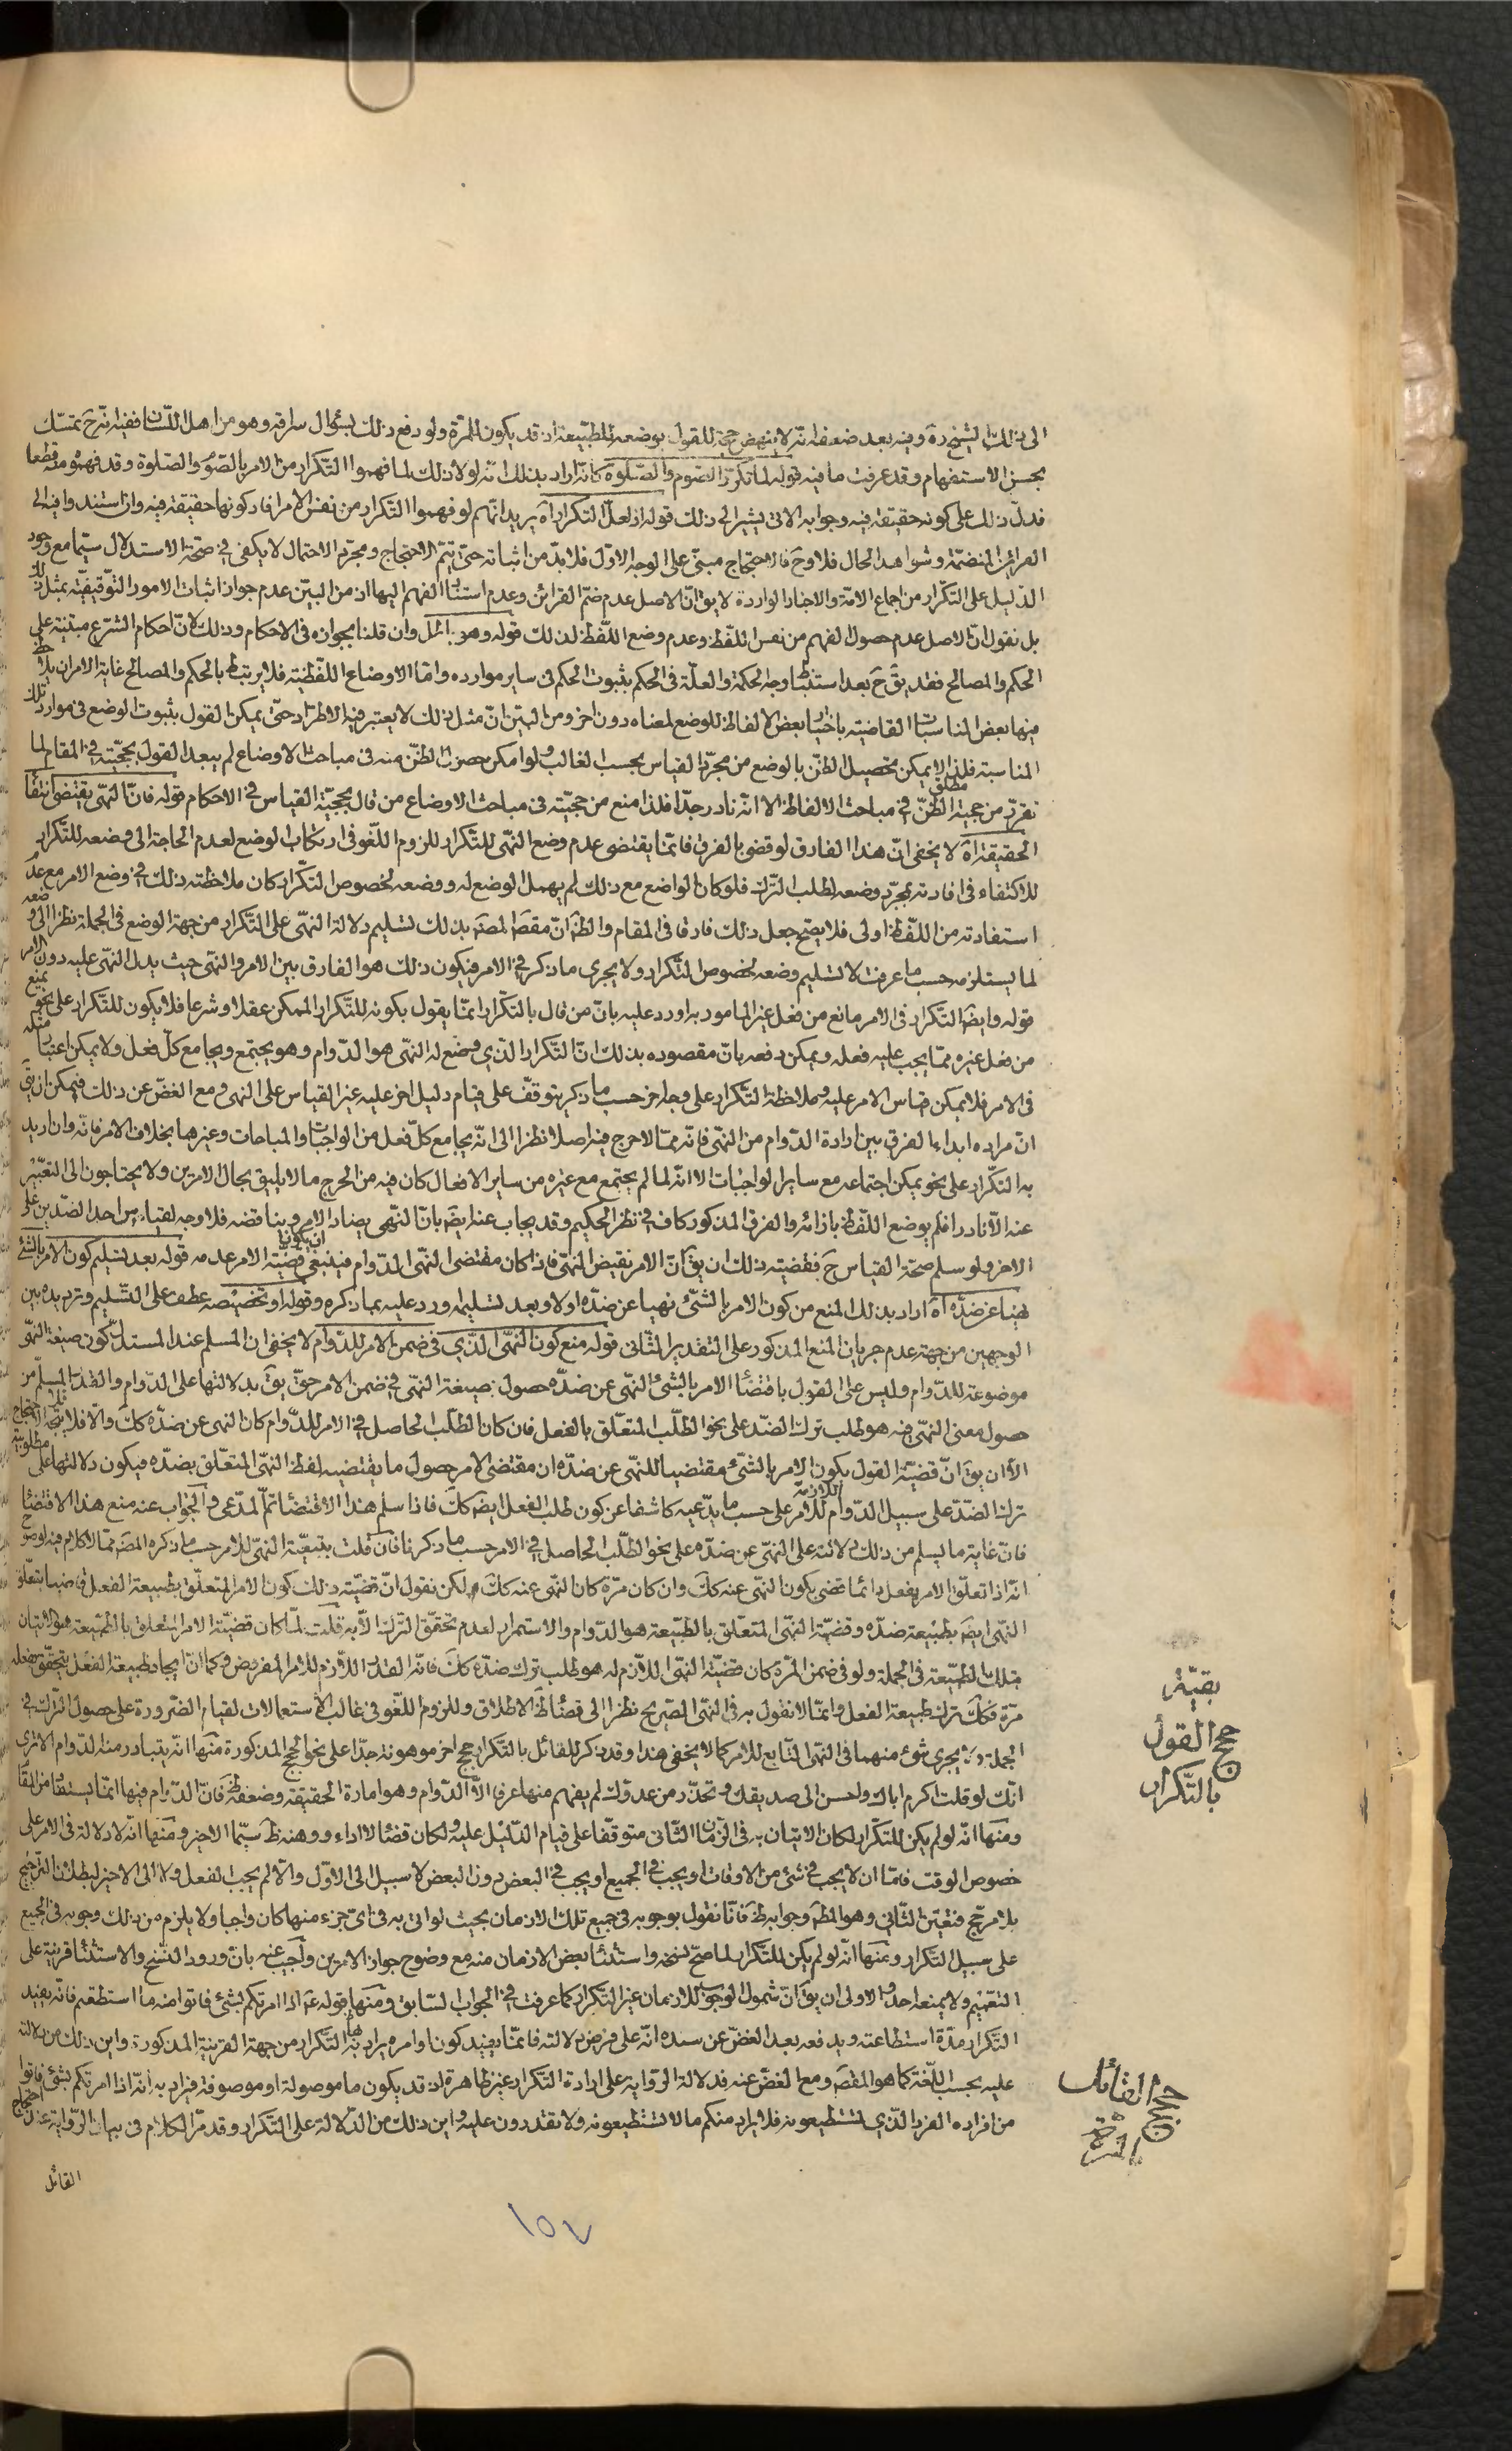 الى ذلك الشيخ ره وفيه بعد ضعفه انه لا ينهض حجة للقول بوضعه للطبيعة اذ قد يكون للمرة ولو دفع ذلك بسؤال سراقه وهو من اهل اللسان ففيه انه ح تمسك
بحسن الاستفهام وقد عرفت ما فيه قوله لما تكرر الصوم والصلوة كانه اراد بذلك انه لولا ذلك لما فهموا التكرار من الامر بالصوم والصلوة وقد فهموه منه قطعا
فدل ذلك على كونه حقيقة فيه وجوابه الاتى يشير الى ذلك قوله اذ لعل التكرار اه يريد انهم لو فهموا التكرار من نفس الامر افاد كونها حقيقة فيه وان استندوا فيه الى
القرائن المنضمة وشواهد الحال فلا وح فالاحتجاج مبنى على الوجه الاول فلا بد من اثباته حتى يتم الاحتجاج ومجرد الاحتمال لا يكفى فى صحة الاستدلال سيما مع وجود
الدليل على التكرار من اجماع الامة والاخبار الواردة لا يق ان الاصل عدم ضم القرائن وعدم استناد الفهم اليها اذ من البين عدم جواز اثبات الامور التوقيفية بمثل ذلك
بل نقول ان الاصل عدم حصول الفهم من نفس اللفظ وعدم وضع اللفظ لذلك قوله وهو باطل وان قلنا بجوازه فى الاحكام وذلك لان احكام الشرع مبتنية على
الحكم والمصالح فقد يق ح بعد استنباط وجه الحكمة والعلة فى الحكم بثبوت الحكم فى ساير موارده واما الاوضاع اللفظية فلا يرتبط بالحكم والمصالح غاية الامر ان يلاحظ
فيها بعض المناسبات القاضية باختيار بعض الالفاظ للوضع لمعناه دون اخر ومن البين ان مثل ذلك لا يعتبر فيه الاطراد حتى يمكن القول بثبوت الوضع فى موارد تلك
المناسبة فلذا لا يمكن تحصيل الظن بالوضع من مجرد القياس بحسب الغالب ولو امكن حصول الظن منه فى مباحث الاوضاع لم يبعد القول بحجيته فى المقام لما
تقرر من حجية مطلق الظن فى مباحث الالفاظ الا انه نادر جدا فلذا منع من حجيته فى مباحث الاوضاع من قال بحجية القياس فى الاحكام قوله فان النهى يقتضى انتفاء
الحقيقة اه لا يخفى ان هذا الفارق لو قضى بالفرق فانما يقتضى عدم وضع النهى للتكرار للزوم اللغو فى ارتكاب الوضع لعدم الحاجة الى وضعه للتكرار
للاكتفاء فى افادته بمجرد وضعه لطلب الترك فلو كان الواضع مع ذلك لم يهمل الوضع له ووضعه لخصوص التكرار كان ملاحظته ذلك فى وضع الامر مع عدم
استفادته من اللفظ اولى فلا يصح جعل ذلك فارقا فى المقام والظ ان مقص المص بذلك تسليم دلالة النهى على التكرار من جهة الوضع فى الجملة نظرا الى وضعه
لما يستلزمه حسب ما عرفت لا تسليم وضعه لخصوص التكرار ولا يجرى ما ذكر فى الامر فيكون ذلك هو الفارق بين الامر والنهى حيث يدل النهى عليه دون الامر
قوله وايض التكرار فى الامر مانع من فعل غير المامور به اورد عليه بان من قال بالتكرار انما يقول بكونه للتكرار الممكن عقلا وشرعا فلا يكون للتكرار على نحو يمنع
من فعل غيره مما يجب عليه فعله ويمكن دفعه بان مقصوده بذلك ان التكرار الذى وضع له النهى هو الدوام وهو يجتمع ويجامع كل فعل ولا يمكن اعتبار مثله
فى الامر فلا يمكن قياس الامر عليه وملاحظة التكرار على وجه اخر حسب ما ذكر يتوقف على قيام دليل اخر عليه غير القياس على النهى ومع الغض عن ذلك فيمكن ان يق
ان مراده ابداء الفرق بين ارادة الدوام من النهى فانه مما لا حرج فيه اصلا نظرا الى انه يجامع كل فعل من الواجبات والمباحات وغيرها بخلاف الامر فانه وان اريد
به التكرار على نحو يمكن اجتماعه مع ساير الواجبات الا انه لما لم يجتمع مع غيره من ساير الافعال كان فيه من الحرج ما لا يليق بحال الامرين ولا يحتاجون الى التعبير
عنه الا نادرا فلم يوضع اللفظ بازائه والفرق المذكور كاف فى نظر الحكيم وقد يجاب عنه ايض بان النهى يضاد الامر ويناقضه فلا وجه لقياس احد الضدين على
الاخر ولو سلم صحة القياس ح فقضيته ذلك ان يق ان الامر نقيض النهى فاذا كان مقتضى النهى الدوام فينبغى ان يكون قضية الامر عدمه قوله بعد تسليم كون الامر بالشئ
نهيا عن ضده اه اراد بذلك المنع من كون الامر بالشئ نهيا عن ضده اولا وبعد تسليمه ورد عليه بما ذكره وقوله او تخصيصه عطف على التسليم وترديده بين
الوجهين من جهة عدم جريان المنع المذكور على التقدير الثانى قوله منع كون النهى الذى فى ضمن الامر للدوام لا يخفى ان المسلم عند المستدل كون صيغة النهى
موضوعة للدوام وليس على القول باقتضاء الامر بالشئ النهى عن ضده حصول صيغة النهى فى ضمن الامر حتى يق بدلالتها على الدوام والقدر المسلم من
حصول معنى النهى فيه هو طلب ترك الضد على نحو الطلب المتعلق بالفعل فان كان الطلب الحاصل فى الامر للدوام كان النهى عن ضده كك والا فلا يتم الاحتجاج
الا ان يق ان قضية القول بكون الامر بالشئ مقتضيا للنهى عن ضده ان مقتضى الامر حصول ما يقتضيه لفظ النهى المتعلق بضده فيكون دلالتها على مطلوبية
ترك الضد على سبيل الدوام اللازمة للامر على حسب ما يدعيه كاشفا عن كون طلب الفعل ايض كك فاذا سلم هذا الاقتضاء تم المدعى والجواب عنه منع هذا الاقتضاء
فان غاية ما يسلم من ذلك دلالته على النهى عن ضده على نحو الطلب الحاصل فى الامر حسب ما ذكرنا فان قلت بتبعية النهى للامر حسب ما ذكره المص مما لا كلام فيه لوضوح
انه اذا تعلق الامر بفعل دائما قضى بكون النهى عنه كك وان كان مرة كان النهى عنه كك لكن نقول ان قضية ذلك كون الامر المتعلق بطبيعة الفعل قاضيا بتعلق
النهى ايض بطبيعة ضده وقضية النهى المتعلق بالطبيعة هو الدوام والاستمرار لعدم تحقق الترك الا به قلت لما كان قضية الامر المتعلق بالطبيعة هو الاتيان
بتلك الطبيعة فى الجملة ولو فى ضمن المرة كان قضية النهى اللازم له هو طلب ترك ضده كك فانه القدر اللازم للامر المفروض وكما ان ايجاد طبيعة الفعل يتحقق بفعله
مرة فكك ترك طبيعة الفعل وانما لا نقول به فى النهى الصريح نظرا الى قضاء ظ الاطلاق وللزوم اللغو فى غالب الاستعمالات لقيام الضرورة على حصول الترك فى
الجملة ولا يجرى شئ منهما فى النهى التابع للامر كما لا يخفى هذا وقد ذكر للقائل بالتكرار حجج اخر موهونة جدا على نحو الحجج المذكورة منها انه يتبادر منه الدوام الا ترى
انك لو قلت اكرم اباك واحسن الى صديقك وتحذر من عدوك لم يفهم منها عرفا الا الدوام وهو امارة الحقيقة وضعفه ظ فان الدوام فيها انما يستفاد من المقام
ومنها انه لو لم يكن للتكرار لكان الاتيان به فى الزمان الثانى متوقفا على قيام الدليل عليه ولكان قضاء لا اداء ووهنه ظ سيما الاخير ومنها انه لا دلالة فى الامر على
خصوص الوقت فاما ان لا يجب فى شئ من الاوقات او يجب فى الجميع او يجب فى البعض دون البعض لا سبيل الى الاول والا لم يجب الفعل ولا الى الاخير لبطلان الترجيح
بلا مرجح فتعين الثانى وهو المط وجوابه ظ فانا نقول بوجوبه فى جميع تلك الازمان بحيث لو اتى به فى اى جزء منها كان واجبا ولا يلزم من ذلك وجوبه فى الجميع
على سبيل التكرار ومنها انه لو لم يكن للتكرار لما صح نسخه واستثناء بعض الازمان منه مع وضوح جواز الامرين واجيب عنه بان ورود النسخ والاستثناء قرينة على
التعميم ولا يمنعه احد والاولى ان يق ان شمول الوجوب للازمان غير التكرار كما عرفت فى الجواب السابق ومنها قوله ع اذا امرتكم بشئ فاتوا منه ما استطعتم فانه يفيد
التكرار مدة استطاعته ويدفعه بعد الغض عن سنده انه على فرض دلالته فانما يفيد كون اوامره يراد بها التكرار من جهة القرينة المذكورة واين ذلك من دلالته
عليه بحسب اللغة كما هو المقص ومع الغض عنه فدلالة الرواية على ارادة التكرار غير ظاهرة اذ قد يكون ما موصولة او موصوفة فيراد به انه اذا امرتكم بشئ فاتوا
من افراده الفرد الذى تستطيعونه فلا يراد منكم ما لا تستطيعونه ولا تقتدرون عليه واين ذلك من الدلالة على التكرار وقد مر الكلام فى بيان الرواية عند احتجاج
القائل
بقية
حجج القول
بالتكرار
حجج القائل
بالمرة
١٥٧